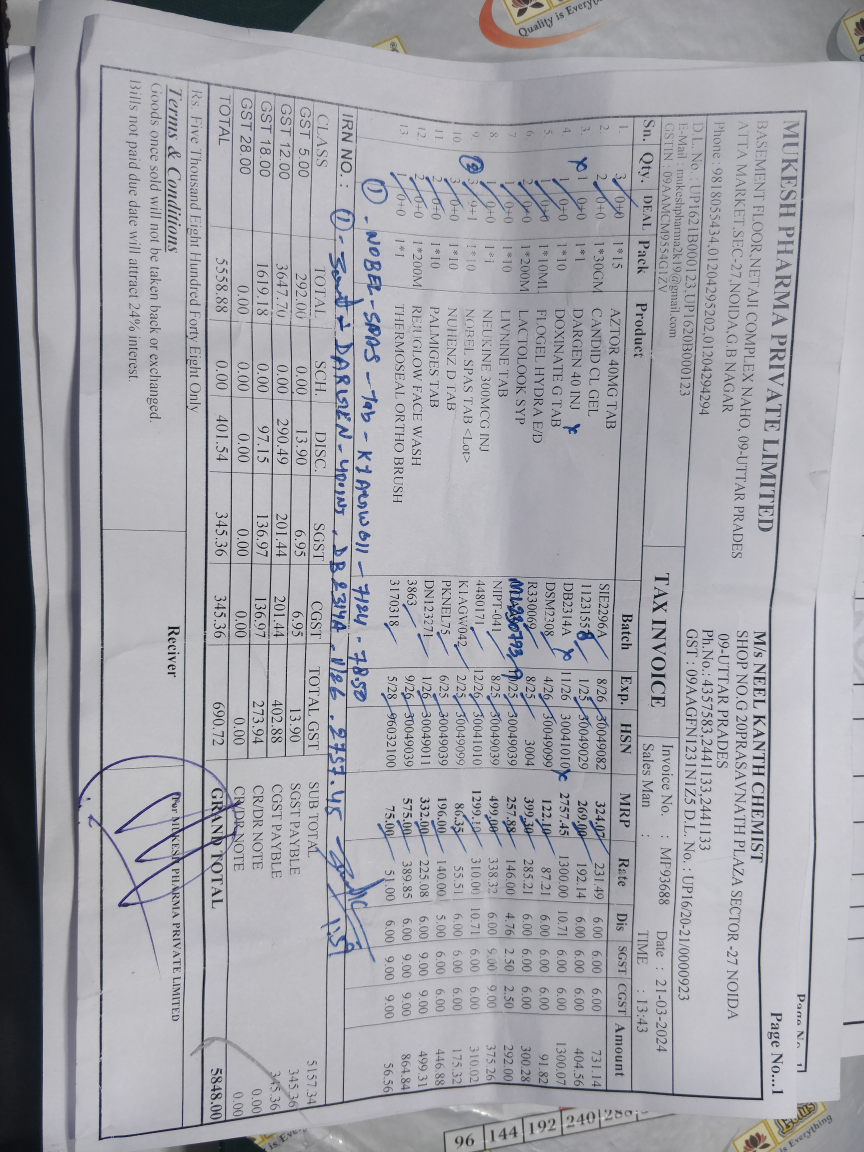 Page No...1
MUKESH PHARMA PRIVATE LIMITED
BASEMENT FLOOR,NETAJI COMPLEX NAHO, 09-UTTAR PRADES
ATTA MARKET,SEC-27,NOIDA,G.B NAGAR
Phone : 9818055434,01204295202,01204294294
D.L. No : UP1621B000123,UP1620B000123
E-Mail : mukeshpharma2k19@gmail.com
GSTIN : 09AAMCM9554G1ZV
TAX INVOICE
M/s NEEL KANTH CHEMIST
SHOP NO.G 20PRASAVNATH PLAZA SECTOR -27 NOIDA
09-UTTAR PRADES
Ph.No.: 4357583,2441133,2441133
GST : 09AAGFN1231N1Z5 D.L. No. : UP16/20-21/0000923
Invoice No. : MP93688 Date : 21-03-2024
Sales Man : TIME : 13:43
Sn. Qty. DEAL Pack Product Batch Exp. HSN MRP Rate Dis SGST CGST Amount
1. 3 0+0 1*15 AZTOR 40MG TAB SIE2296A 8/26 30049082 324.07 231.49 6.00 6.00 6.00 731.14
2. 2 0+0 1*30GM CANDID CL GEL 1/25 30049029 269.00 192.14 6.00 6.00 6.00 404.56
3. 1 0+0 1*1 DARGEN 40 INJ DB2314A 11/26 30041010 2757.45 1300.00 10.71 6.00 6.00 1300.07
4. 1 0+0 1*10 DOXINATE G TAB DSM2308 4/26 30049099 122.10 87.21 6.00 6.00 6.00 91.82
5. 1 0+0 1*10ML FLOGEL HYDRA E/D R330069 8/25 3004 399.30 285.21 6.00 6.00 6.00 300.28
6. 2 0+0 1*200M LACTOLOOK SYP 30049039 257.88 146.00 4.76 2.50 2.50 292.00
7. 1 0+0 1*10 LIVNINE TAB NIPT-041 8/25 30049039 499.00 338.32 6.00 9.00 9.00 375.26
8. 1 0+0 1*1 NEUKINE 300MCG INJ 4480171 12/26 30041010 1299.10 310.00 10.71 6.00 6.00 310.02
9. 3 9+1 1*10 NOBEL SPAS TAB <Lot> K1AGW042 2/25 30049099 86.35 55.51 6.00 6.00 6.00 175.32
10. 3 0+0 1*10 NUHENZ D TAB PKNEL75 6/25 30049039 196.00 140.00 5.00 6.00 6.00 446.88
11. 2 0+0 1*10 PALMIGES TAB DN123271 1/26 30049011 332.00 225.08 6.00 9.00 9.00 499.31
12. 2 0+0 1*200M REJUGLOW FACE WASH 3863 9/26 30049039 575.00 389.85 6.00 9.00 9.00 864.84
13. 1 0+0 1*1 THERMOSEAL ORTHO BRUSH 3170318 5/28 96032100 75.00 51.00 6.00 9.00 9.00 56.56
① - NOBEL-SPAS - Tab - 7850
IRN NO. :
① - DARGEN-40 INJ, DB2314A, 2757.45
CLASS TOTAL SCH. DISC. SGST CGST TOTAL GST
GST 5.00 292.00 0.00 13.90 6.95 6.95 13.90
GST 12.00 3647.70 0.00 290.49 201.44 201.44 402.88
GST 18.00 1619.18 0.00 97.15 136.97 136.97 273.94
GST 28.00 0.00 0.00 0.00 0.00 0.00 0.00
TOTAL 5558.88 0.00 401.54 345.36 345.36 690.72
SUB TOTAL 5157.34
SGST PAYBLE 345.36
CGST PAYBLE 345.36
CR/DR NOTE 0.00
CR/DR NOTE 0.00
GRAND TOTAL 5848.00
Rs. Five Thousand Eight Hundred Forty Eight Only
Terms & Conditions
Goods once sold will not be taken back or exchanged.
Bills not paid due date will attract 24% interest.
Reciver
For MUKESH PHARMA PRIVATE LIMITED
Quality is Everything
96 144 192 240 288
is Everything